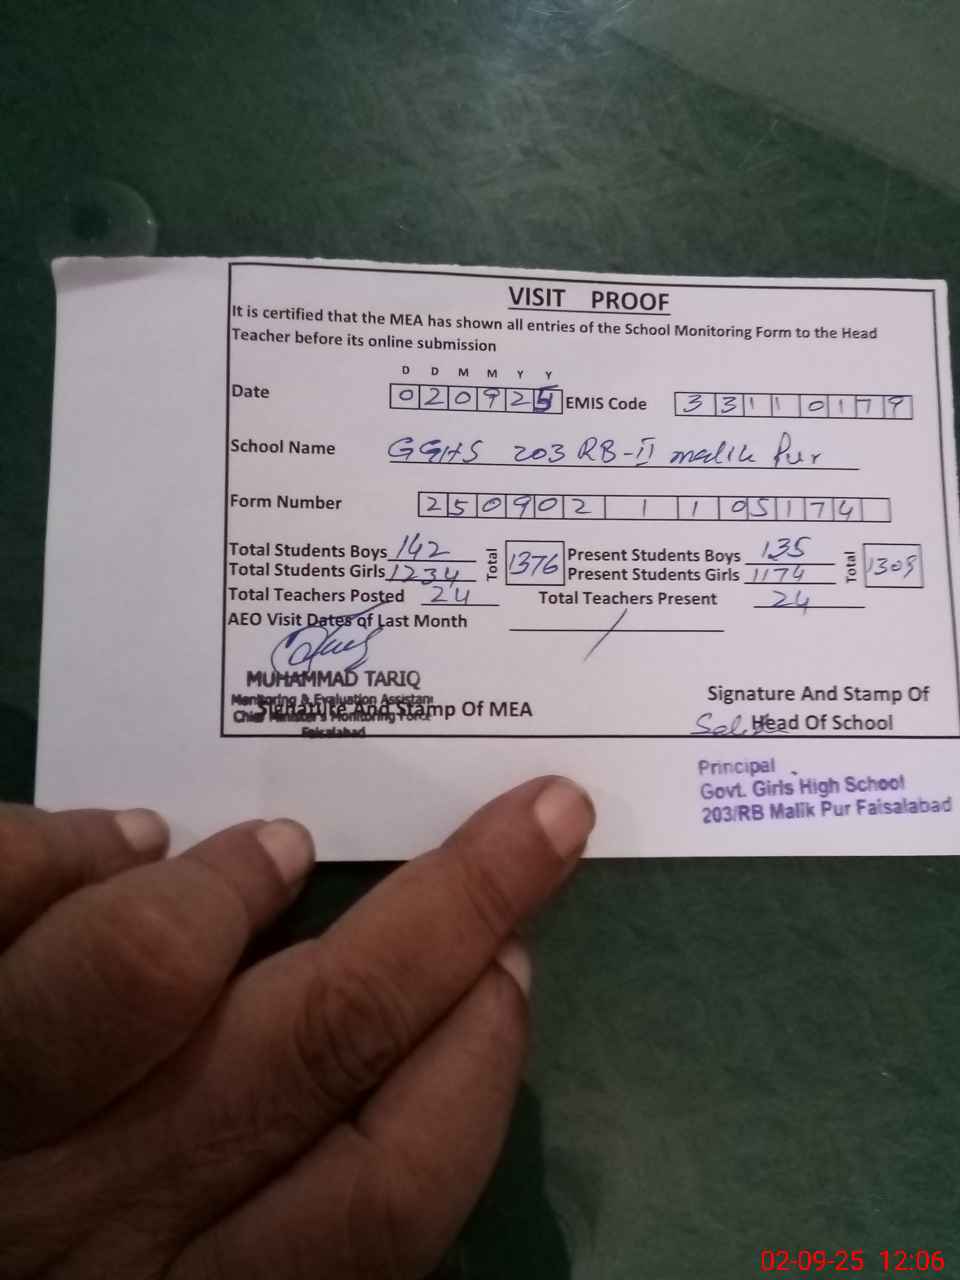 VISIT PROOF
It is certified that the MEA has shown all entries of the School Monitoring Form to the Head
Teacher before its online submission
D D M M Y Y
Date 0 2 0 9 2 5 EMIS Code 3 3 1 1 0 1 7 9
School Name GGHS 203 RB-II malik Pur
Form Number 2 5 0 9 0 2 1 1 0 5 1 7 4
Total Students Boys 142 Total 1376 Present Students Boys 135 Total 1309
Total Students Girls 1234 Present Students Girls 1174
Total Teachers Posted 24 Total Teachers Present 24
AEO Visit Dates of Last Month /
MUHAMMAD TARIQ
Monitoring & Evaluation Assistant
Signature And Stamp Of MEA
Chief Minister's Monitoring Force
Faisalabad
Signature And Stamp Of
Head Of School
Principal
Govt. Girls High School
203/RB Malik Pur Faisalabad
02-09-25 12:06